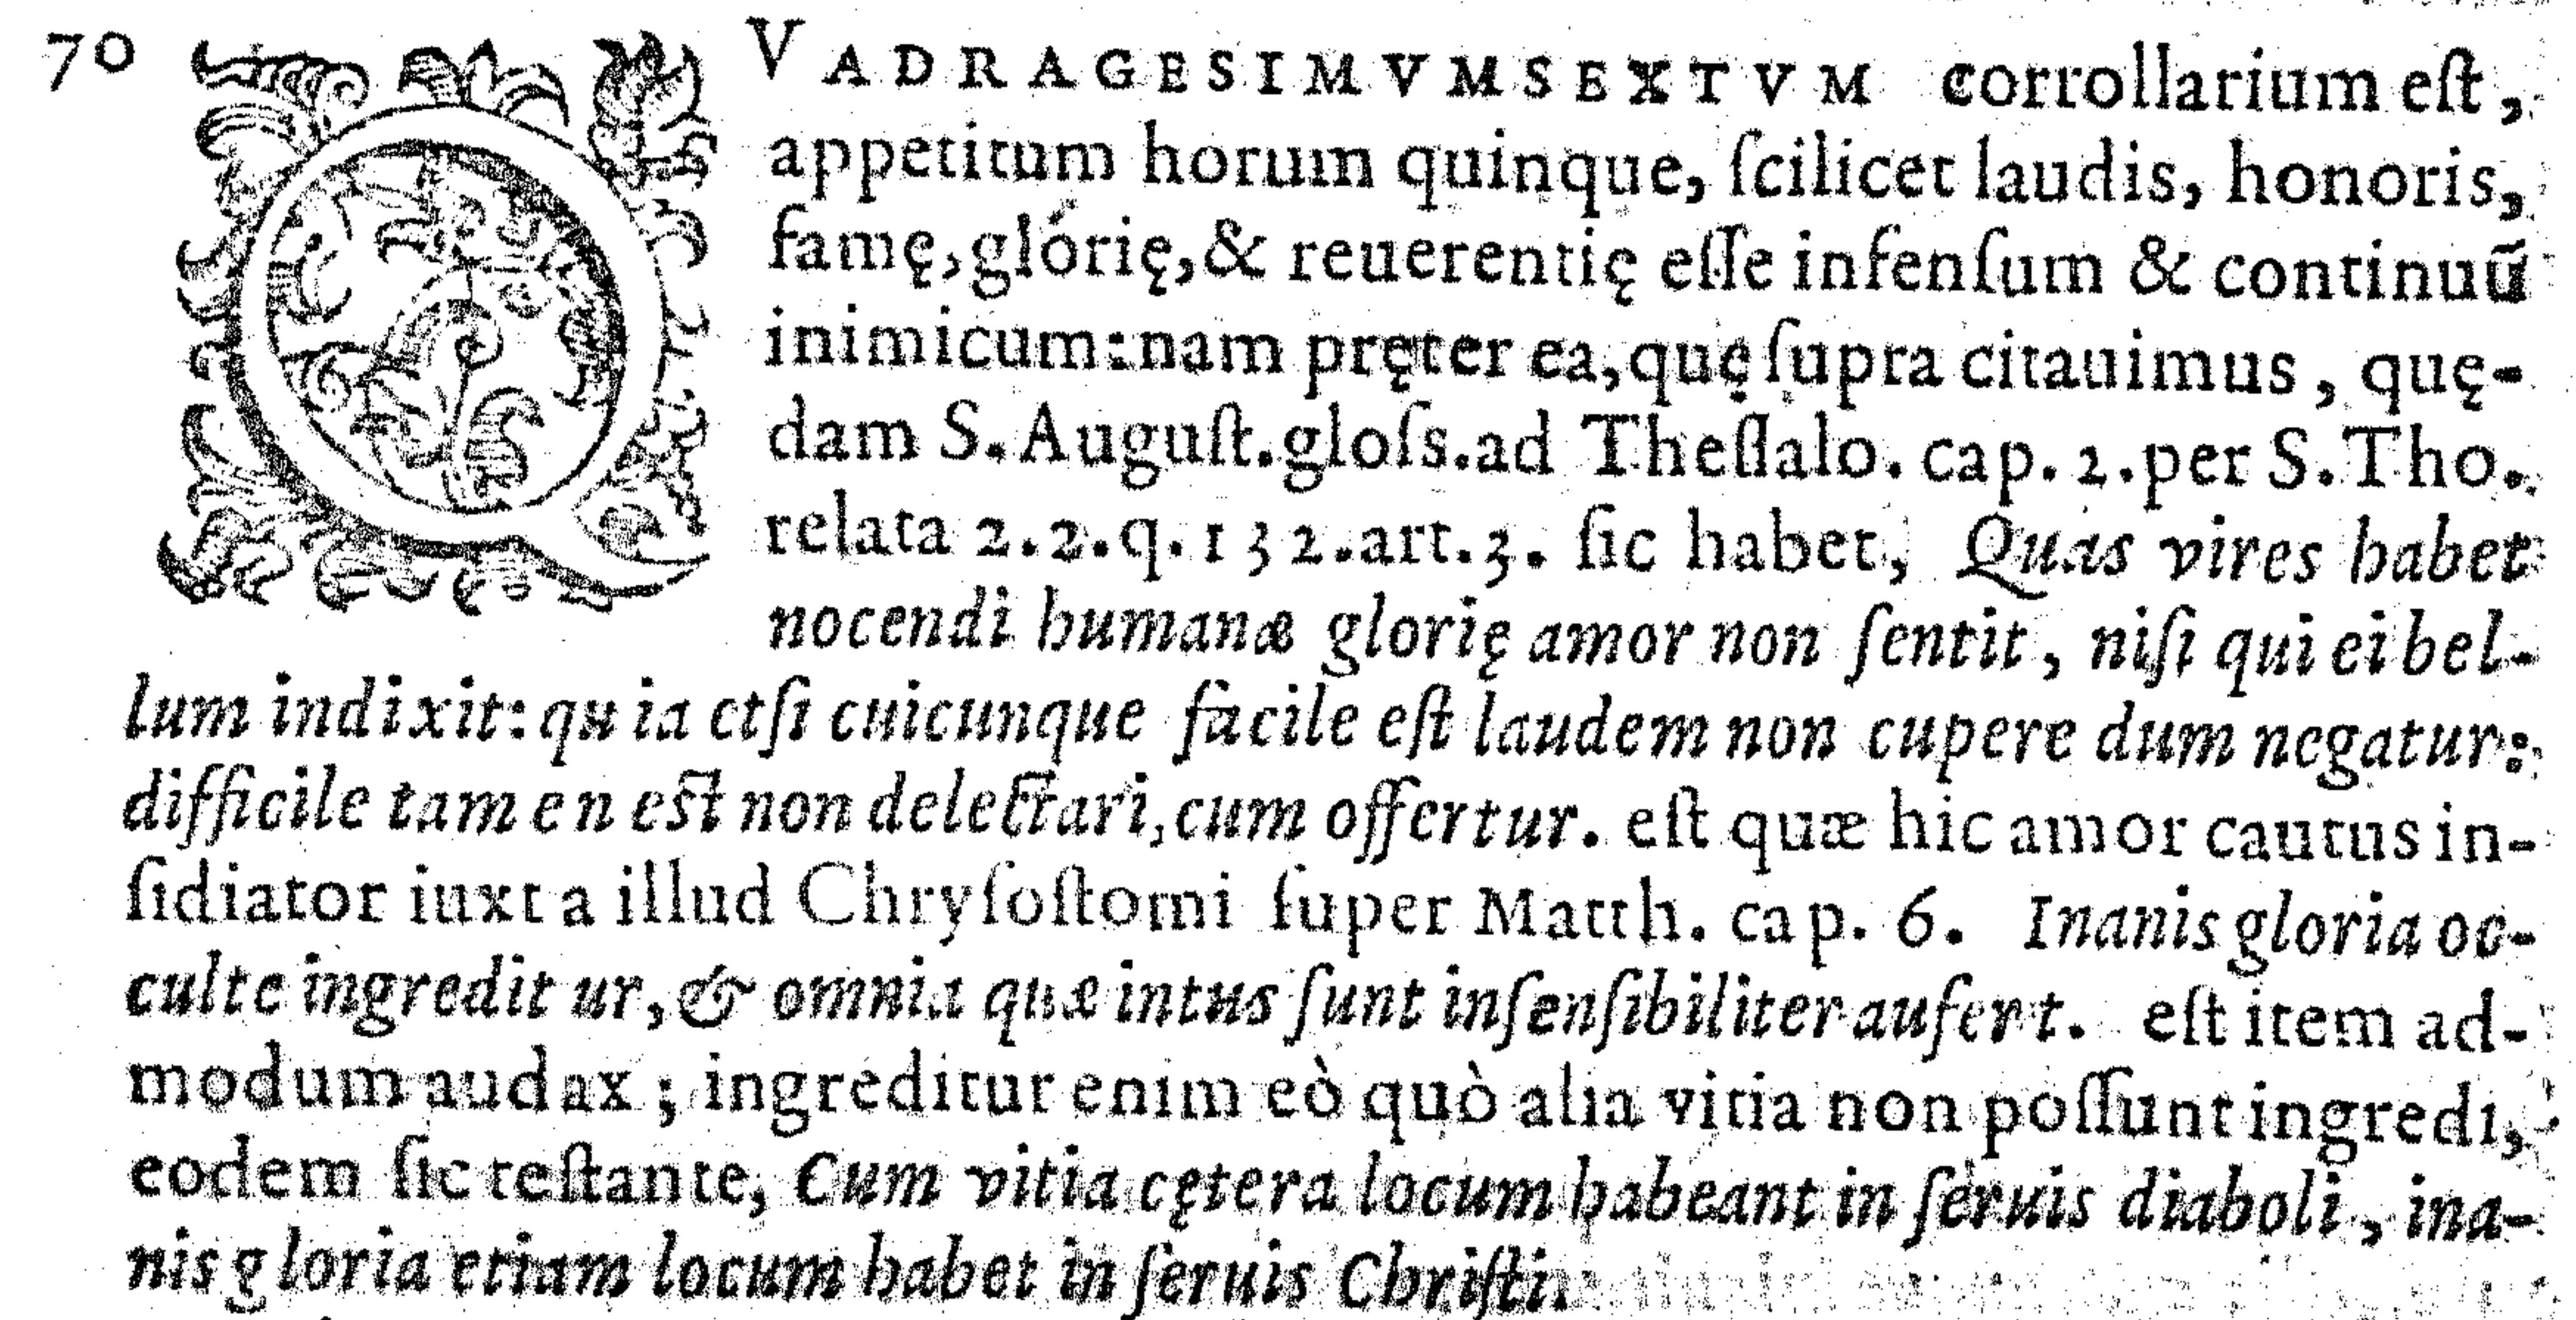 70 QVADRAGESIMVMSEXTVM corrollarium eſt,
appetitum horum quinque, ſcilicet laudis, honoris,
famę, glórię, & reuerentię eſſe infenſum & continuū
inimicum: nam pręter ea, quę ſupra citauimus, quę-
dam S. Auguſt. gloſs. ad Theſſalo. cap. 2. per S. Tho.
relata 2. 2. q. 132. art. 3. ſic habet, Quas vires habet
nocendi humanæ glorię amor non ſentit, niſi qui ei bel-
lum indixit: quia etſi cuicunque facile eſt laudem non cupere dum negatur:
difficile tamen eſt non delectari, cum offertur. eſt quæ hic amor cautus in-
ſidiator iuxta illud Chryſoſtomi ſuper Matth. cap. 6. Inanis gloria oc-
culte ingreditur, & omnia quæ intus ſunt inſenſibiliter aufert. eſt item ad-
modum audax; ingreditur enim eò quò alia vitia non poſſunt ingredi,
eodem ſic teſtante, Cum vitia cętera locum habeant in ſeruis diaboli, ina-
nis gloria etiam locum habet in ſeruis Chriſti.